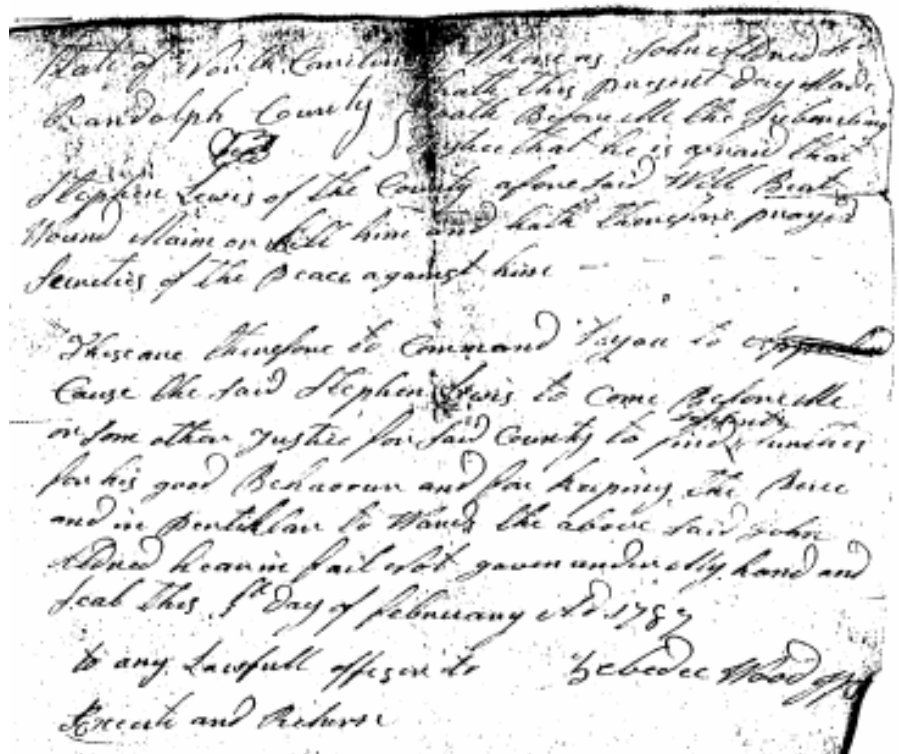 State of North Carolina Whereas John Aldred
Randolph County hath this present Day Made
oath Before Me the Subscribing
Justice that he is afraid that
Stephen Lewis of the County aforesaid Will Beat
Wound Maim or kill him and hath therefore prayed
Securities of the Peace against him
These are therefore to Command you to
Cause the said Stephen Lewis to Come Before Me
or Som other Justice for said County to find
for his good Behavour and for keping the Peace
and in to Wards the above said John
Aldred hearin fail Not given under My hand and
Seal this 5th Day of February AD 1787
to any Lawfull officer to Zebedee Wood
Execute and Return